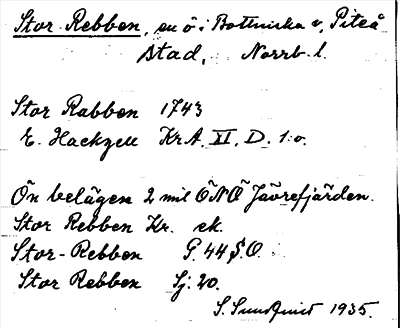 Stor-Rebben, en ö i Bottniska v, Piteå
stad, Norrb. l.
Stor Rabben 1743
E. Hackzell Kr.A. XI, D. 1:o.
Ön belägen 2 mil ÖNÖ Jävrefjärden.
Stor Rebben Kr. ek.
Stor-Rebben G. 44 S.O.
Stor Rebben Sj. 20.
S. Sundquist 1935.